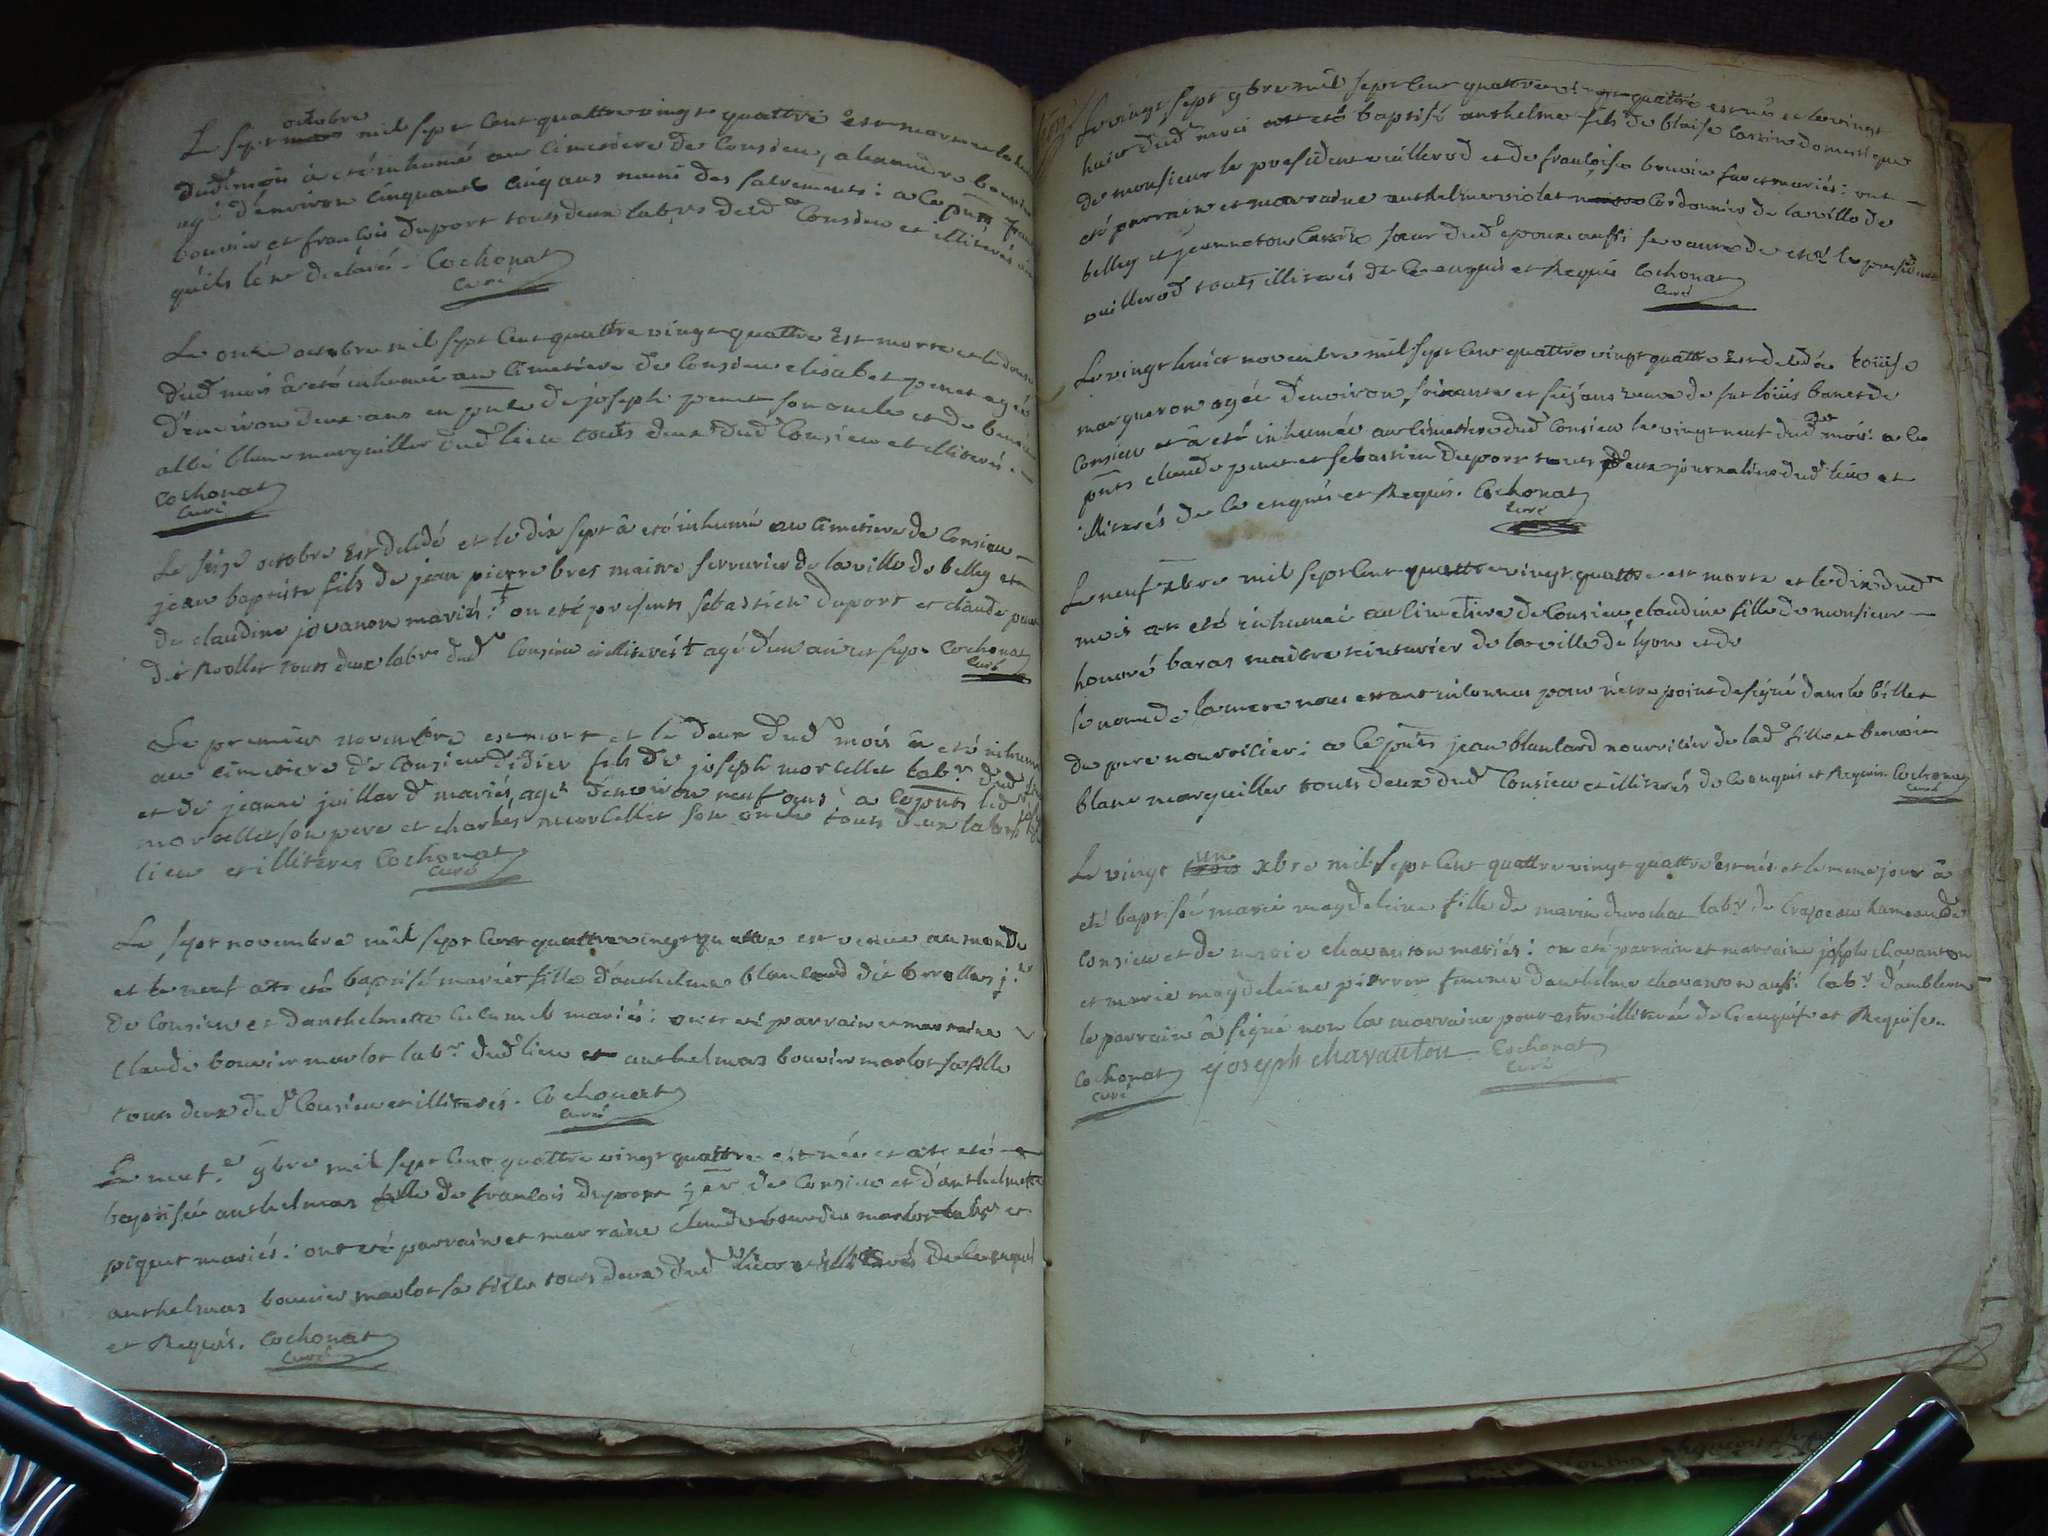 octobre
Le sept mil sept cent quattre vingt quattre est mort et le huit
dud mois à eté inhumé au cimetiere de Consieu, alexandre bouvier
agé d'environ cinquante cinq ans muni des sacremens: a ce pnts
bouvier et francois duport touts deux labrs dud Consieu et illiterés
qu'ils l'ont declaré. Cochonat
Curé
Le onze octobre mil sept cent quattre vingt quattre est morte et le douze
dud mois à eté inhumé au cimetiere de Consieu elisabet penet agée
d'environ deux ans en pnce de joseph penet son oncle et de benoit
albi blanc marguiller dud lieu touts deux dud Consieu et illiterés.
Cochonat
Curé
Le seize octobre est décédé et le dix sept à eté inhumé au cimetiere de Consieu
jean baptiste fils de jean pierre bres maitre serrurier de la ville de belley et
de claudine jovanon mariés: on eté presents sebastien duport et claude penet
dit Roller touts deux labrs dud Consieu illiterés † agé d'un an et sept Cochonat
Curé
Le premier novembre est mort et le deux dud mois à eté inhumé
au cimetiere de Consieu didier fils de joseph morcellet labr dud
et de jeanne juillard mariés, agé d'environ neuf ans: a ce pnts led
morcellet son pere et charles morcellet son oncle touts deux labrs
lieu et illiteres Cochonat
Curé
Le sept novembre mil sept cent quattre vingt quattre est venue au monde
et le neuf at eté baptisé marie fille d'anthelme blanchard dit brollas jr
de Consieu et d'anthelmette mariés: ont eté parrain et marraine
claude bouvier marlot labr dud lieu et anthelmas bouvier marlot sa fille
touts deux dud Consieu et illiterés. Cochonat
Curé
Le neuf 9bre mil sept cent quattre vingt quattre est née et at eté
baptisée anthelmas fille de francois duport jer de Consieu et d'anthelmette
piquet mariés: ont eté parrain et marraine claude bouvier marlot labr et
anthelmas bouvier marlot sa fille touts deux dud lieu et illiterés de ce enquis
et Requis. Cochonat
Curé
Le vingt sept 9bre mil sept cent quattre vingt quattre est né et le vingt
huit dud moi at eté baptisé anthelme fils de blaise domestique
de monsieur le president vuillerod et de francoise bouvie mariés: ont
eté parrain et marraine anthelme violet Cordonnier de la ville de
belley et jeanneton soeur dud epoux aussi servante de mr le president
vuillerod touts illiterés de ce enquis et Requis Cochonat
Curé
Le vingt huict novembre mil sept cent quattre vingt quattre est décédée loüise
marqueron agée d'environ soixante et seize ans veuve de fut loüis banet de
Consieu et à eté inhumée au cimetiere dud Consieu le vingt neuf dud moi: a ce
pnts claude penet et sebastien duport touts deux journaliers dud lieu et
illiterés de ce enquis et Requis. Cochonat
Curé
Le neuf xbre mil sept cent quattre vingt quattre est morte et le dix dud
mois at eté inhumée au cimetiere de Consieu claudine fille de monsieur
honoré baras maitre teinturier de la ville de lyon et de
le nom de la mere nous etant inconnu pour n'etre point designé dans le billet
du pere nourricier; a ce pnts jean blanchard nourricier de lad fille et benoit
blanc marguiller touts deux dud Consieu et illiterés de ce enquis et Requis. Cochonat
Curé
un
Le vingt trois xbre mil sept cent quattre vingt quattre est née et le meme jour à
eté baptisée marie magdeleine fille de marin durochat labr de Crapeau hameau de
Consieu et de marie chavanton mariés: on eté parrain et marraine joseph chavanton
et marie magdeleine pierron femme d'anthelme chavanton aussi labr d'ambleon
le parrain à signé non la marraine pour estre illiterée de ce enquise et Requise.
Cochonat joseph chavanton Cochonat
Curé Curé